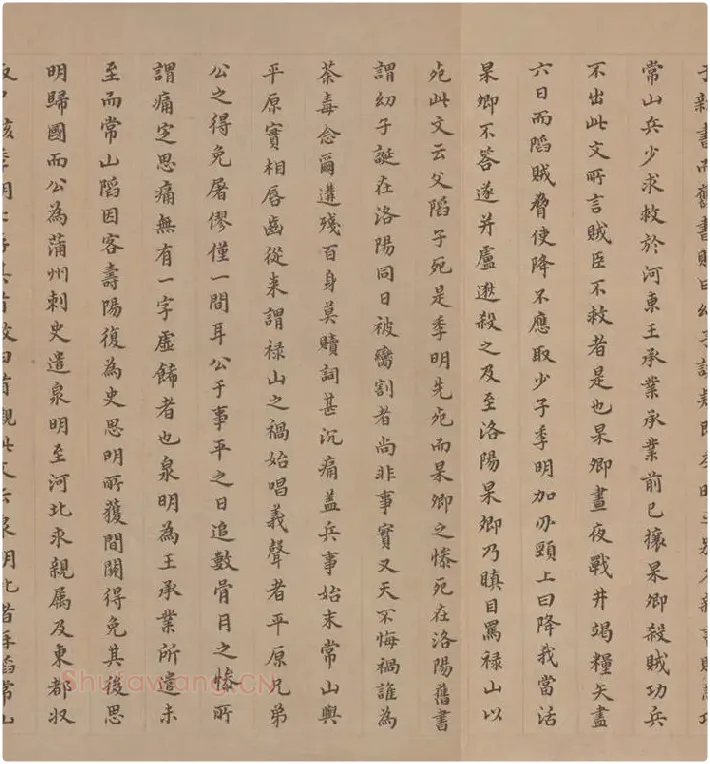 常山兵少求救於河東王承業承業前已攘杲卿殺賊功兵
不出此文所言賊臣不救者是也杲卿晝夜戰井竭糧矢盡
六日而陷賊脅使降不應取少子季明加刃頸上曰降我當活
杲卿不答遂并盧逖殺之及至洛陽杲卿乃瞋目罵祿山以
死此文云父陷子死是季明先死而杲卿之慘死在洛陽舊書
謂幼子誕在洛陽同日被臠割者尚非事實又天不悔禍誰為
荼毒念爾遘殘百身莫贖詞甚沉痛蓋兵事始末常山與
平原實相唇齒從來謂祿山之禍始唱義聲者平原兄弟
公之得免屠僇僅一間耳公于事平之日追數骨月之慘所
謂痛定思痛無有一字虛餙者也泉明為王承業所遣未
至而常山陷因客壽陽復為史思明所獲間關得免其後思
明歸國而公為蒲州刺史遣泉明至河北求親屬及東都收
Shufawang.CN